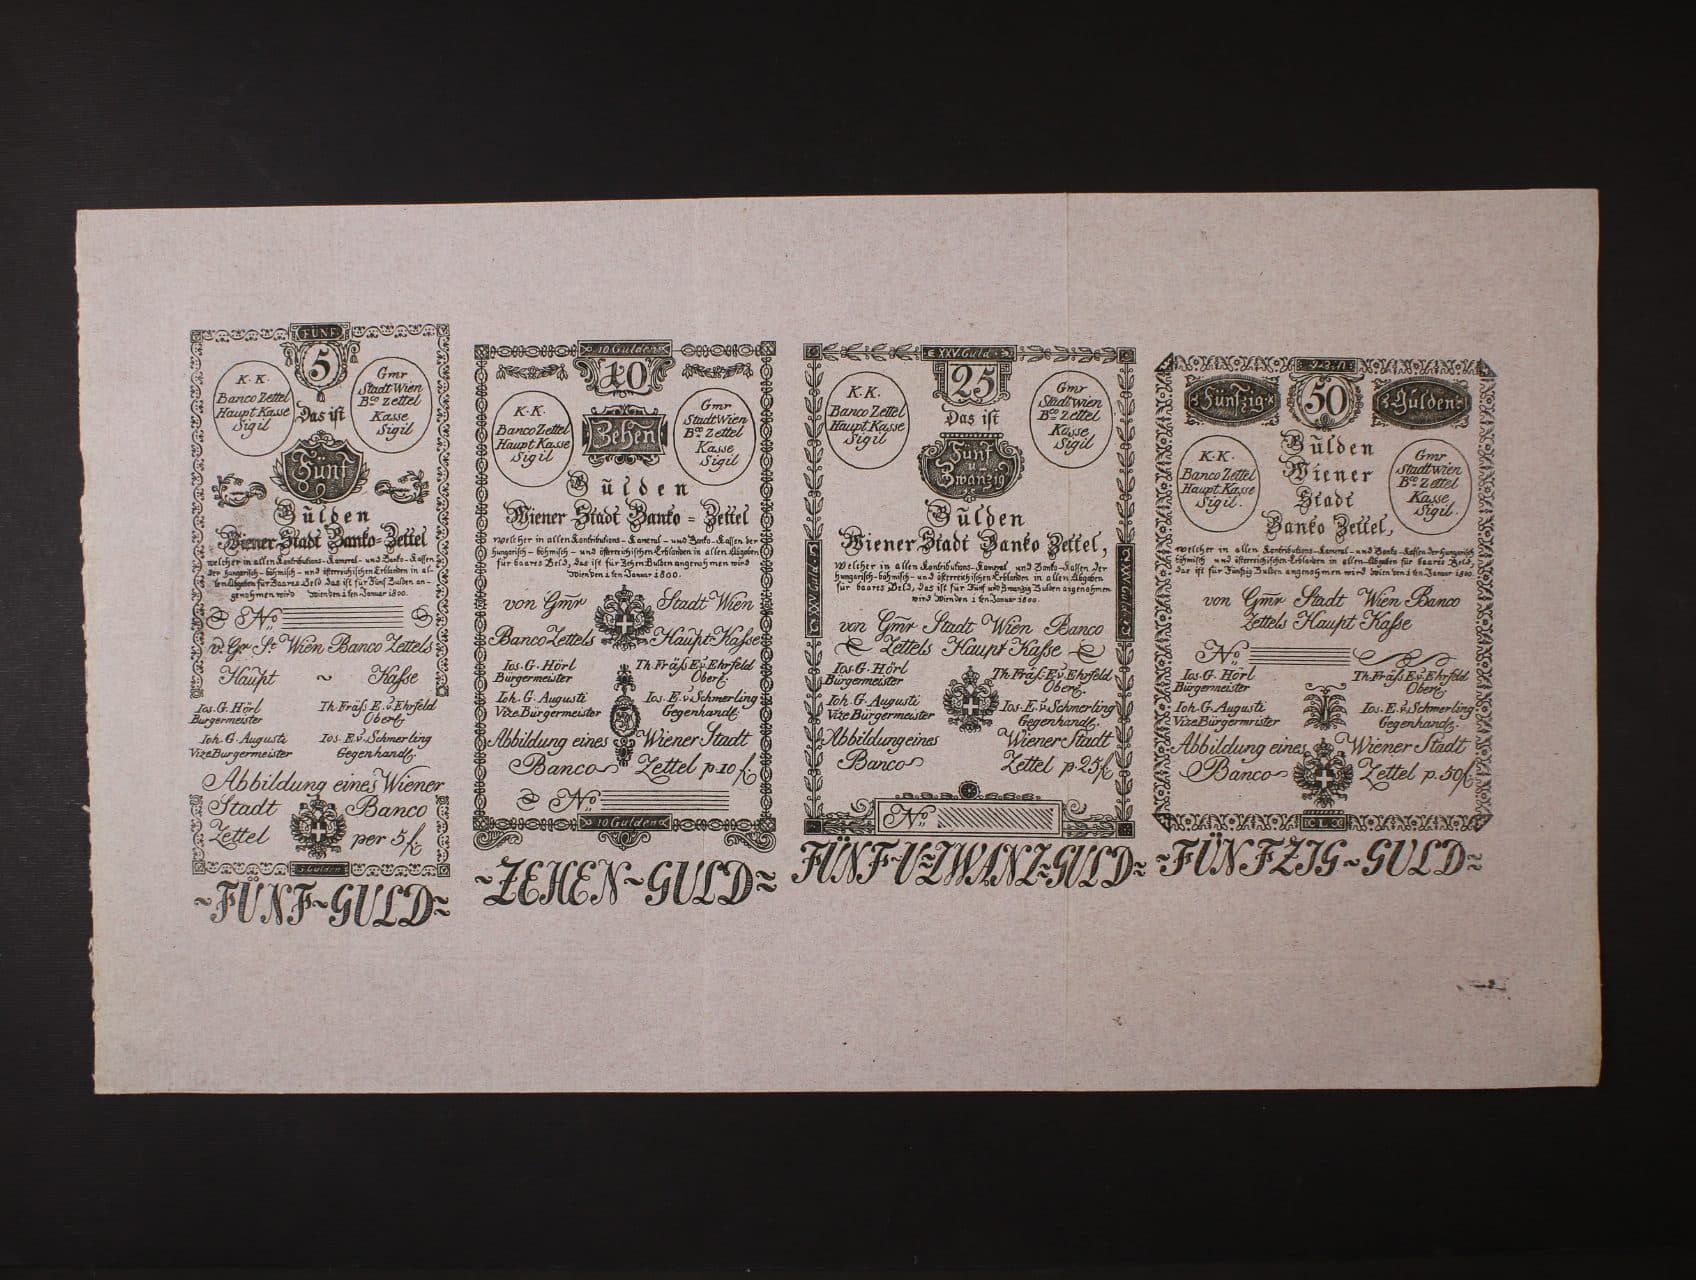 FÜNF
5
K. K.
Banco Zettel
Haupt Kasse
Sigil
Gmr
Stadt Wien
Bco Zettel
Kasse
Sigil
Das ist
Fünf
Gulden
Wiener Stadt Banko-Zettel
welcher in allen Kontributions-Kameral- und Banko-Kassen
der hungarisch-böhmisch- und österreichischen Erblanden in al-
len Abgaben für Baares Geld das ist für Fünf Gulden an-
genohmen wird Wien den 1ten Januar 1800.
No.
v. Gr St Wien Banco Zettels
Haupt ~ Kasse
Ios. G. Hörl
Burgermeister
Th. Fräß E. v. Ehrfeld
Obere.
Ioh. G. Augusti
Vize Burgermeister
Ios. E. v. Schmerling
Gegenhandl.
Abbildung eines Wiener
Stadt Banco
Zettel per 5 f.
5 Gulden
~FÜNF~GULD~
10 Gulden
10
K. K.
Banco Zettel
Haupt Kasse
Sigil
Gmr
Stadt Wien
Bco Zettel
Kasse
Sigil
Zehen
Gulden
Wiener Stadt Banko-Zettel
welcher in allen Kontributions-Kameral- und Banko-Kassen der
hungarisch-böhmisch- und österreichischen Erblanden in allen Abgaben
für baares Geld, das ist für Zehen Gulden angenohmen wird
Wien den 1ten Januar 1800.
von Gmr Stadt Wien
Banco Zettels Haupt Kasse
Ios. G. Hörl
Bürgermeister
Th. Fräß E. v. Ehrfeld
Obere.
Ioh. G. Augusti
Vize Bürgermeister
Ios. E. v. Schmerling
Gegenhandl.
Abbildung eines Wiener Stadt
Banco Zettel p. 10 f.
No.
10 Gulden
~ZEHEN~GULD~
XXV Guld
25
K. K.
Banco Zettel
Haupt Kasse
Sigil
Gmr
Stadt Wien
Bco Zettel
Kasse
Sigil
Das ist
Fünf
u.
Zwanzig
Gulden
Wiener Stadt Banko Zettel,
Welcher in allen Kontributions-Kameral und Banko-Kassen der
hungarisch-böhmisch- und österreichischen Erblanden in allen Abgaben
für baares Geld, das ist für Fünf und Zwanzig Gulden angenohmen
wird Wien den 1ten Januar 1800.
XXV Guld
XXV Guld
von Gmr Stadt Wien Banco
Zettels Haupt Kasse
Ios. G. Hörl
Bürgermeister
Th. Fräß E. v. Ehrfeld
Obere.
Ioh. G. Augusti
Vize Bürgermeister
Ios. E. v. Schmerling
Gegenhandl.
Abbildung eines Wiener Stadt
Banco Zettel p. 25 f.
No.
FÜNF~U~ZWANZ~GULD~
50
Fünfzig
Gulden
K. K.
Banco Zettel
Haupt Kasse
Sigil.
Gmr
Stadt Wien
Bco Zettel
Kasse
Sigil.
Gulden
Wiener
Stadt
Banko Zettel,
welcher in allen Kontributions-Kameral- und Banko-Kassen der hungarisch
böhmisch- und österreichischen Erblanden in allen Abgaben für baares Geld,
das ist für Fünfzig Gulden angenohmen wird Wien den 1ten Januar 1800.
von Gmr Stadt Wien Banco
Zettels Haupt Kasse
No.
Ios. G. Hörl
Bürgermeister
Th. Fräß E. v. Ehrfeld
Obere.
Ioh. G. Augusti
Vize Bürgermrister
Ios. E. v. Schmerling
Gegenhandl.
Abbildung eines Wiener Stadt
Banco Zettel p. 50 f.
L
~FÜNFZIG~GULD~